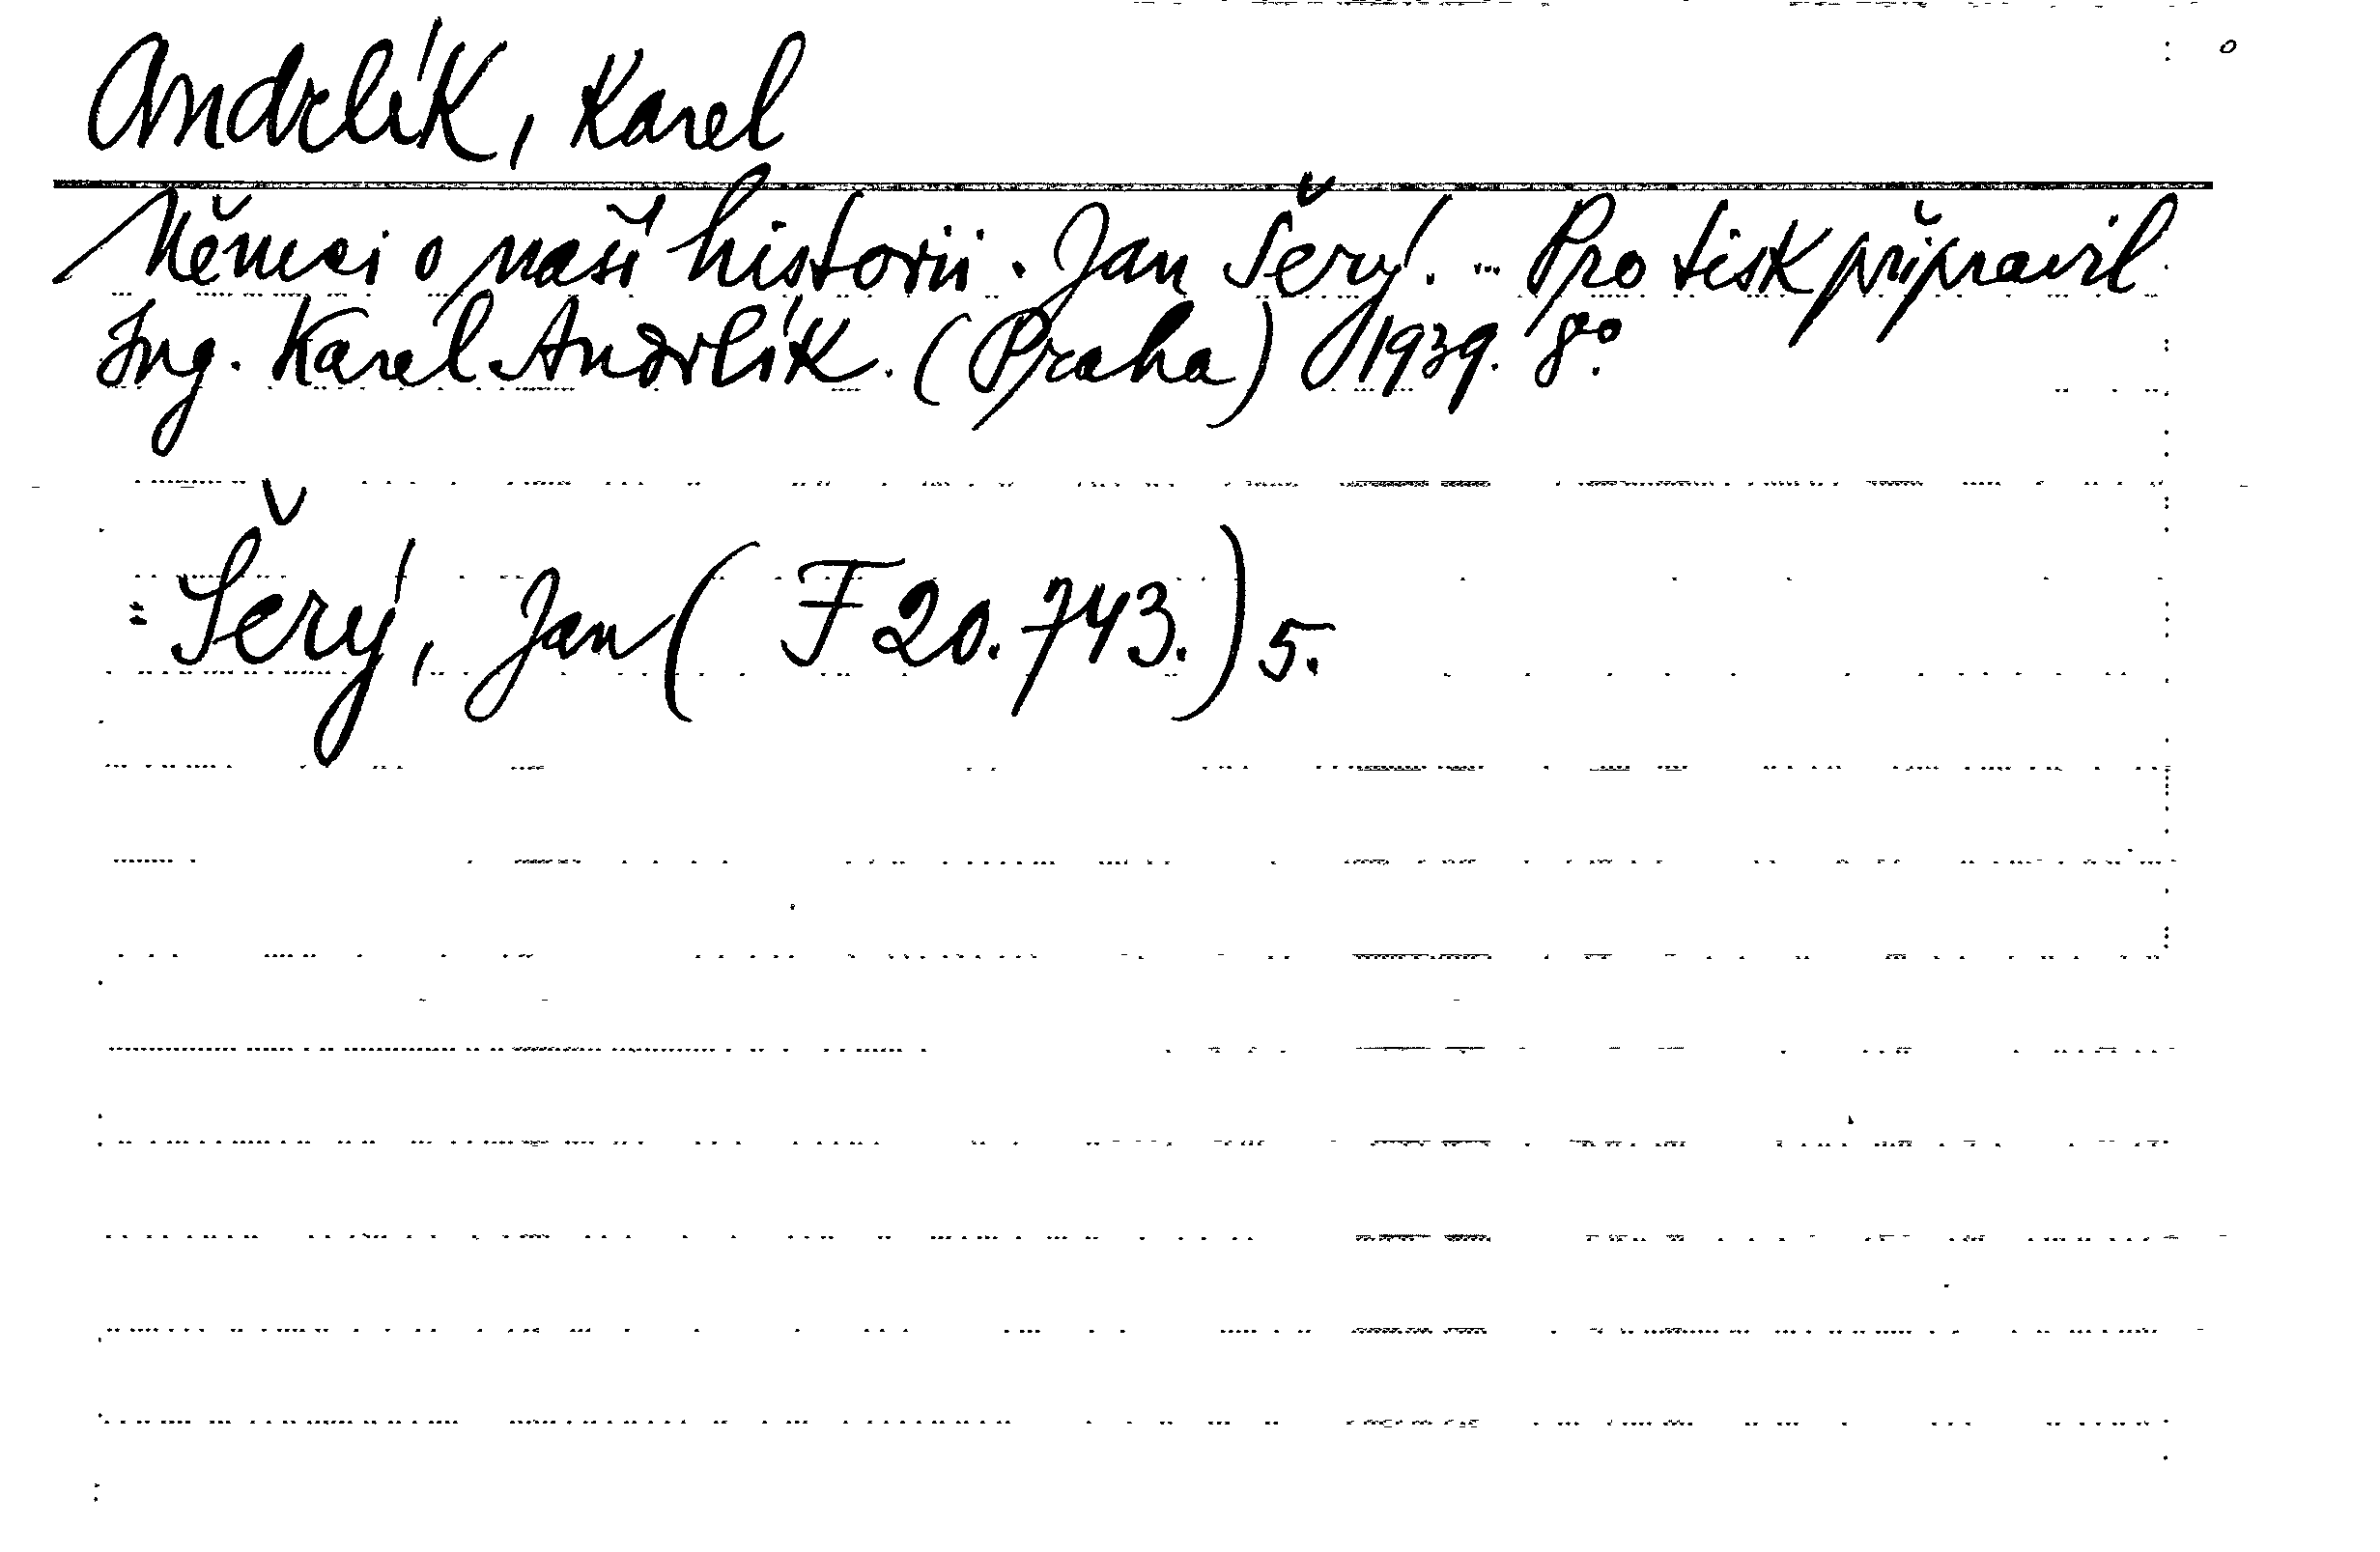 Andrlík, Karel
Němci o naší historii. Jan Šerý. ... Pro tisk připravil
Ing. Karel Andrlík. (Praha) 1939. 8°.
= Šerý, Jan ( F 20.743.) 5.